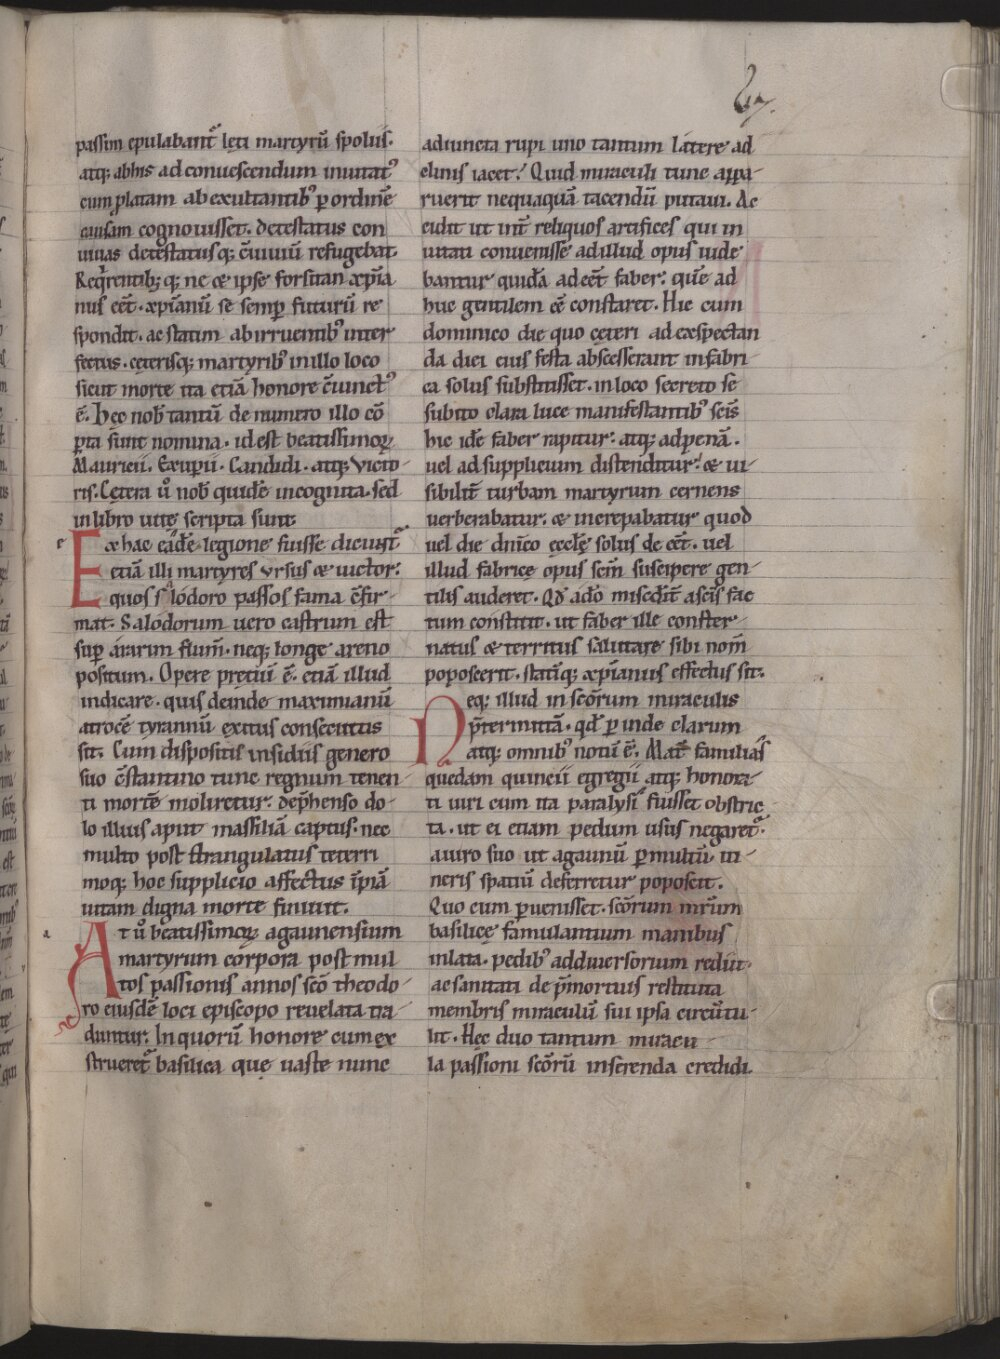 passim epulabant᷑ lęti martyrū spoliis.
atq; ab his ad conuescendum inuitatꝰ
cum platam ab exultantibꝰ p ordinē
causam cognouisset. detestatus con
uiuas detestatusq; c̄uiuiū refugebat.
Reqͥrentibꝫ q; ne & ipse forsitan xp̄ia
nus eēt. xp̄ianū se semp futurū re
spondit. ac statim ab irruentibꝰ inter
fectus. cęterisq; martyribꝰ in illo loco
sicut morte ita etiā honore c̄iunctꝰ
ē. Hęc nob̄ tantū de numero illo cō
pta sunt nomina. id est beatissimoꝝ
Mauricii. Exuperii. Candidi. atq; Victo-
ris. Cętera ū nob̄ quidē incognita. sed
in libro uitę scripta sunt.
e Ex hac eādē legione fuisse dicunt᷑
etiā illi martyres vrsus & uictor.
quos salodoro passos fama c̄fir-
mat. Salodorum uero castrum est
sup ararim flum̄. neq; longe a reno
positum. Opere preciū ē. etiā illud
indicare. quis deinde maximianū
atrocē tyrannū exitus consecutus
sit. Cum dispositis insidiis genero
suo c̄stantino tunc regnum tenen-
ti mortē moliretur. dep̄henso do-
lo illius aput massiliā captus. nec
multo post strangulatus teterri
moq; hoc supplicio affectus īpiā
uitam digna morte finiuit.
a At ū beatissimoꝝ agaunensium
martyrum corpora post mul
tos passionis annos sc̄o theodo-
ro eiusdē loci episcopo reuelata tra
duntur. In quorū honore cum ex
strueret᷑ basilica quę uaste nunc
adiuncta rupi uno tantum latere ad
clinis iacet. Quid miraculi tunc appa-
ruerit nequaquā tacendū putaui. Ac
cidit ut int̄ reliquos artifices qui in
uitati conuenisse ad illud opus uide
bantur quidā adeēt faber. quē ad
huc gentilem eē constaret. Hic cum
dominico die quo cęteri ad exspectan
da diei eius festa abscesserant in fabri-
ca solus substitisset. in loco secreto se
subito clara luce manifestantibꝰ sc̄is
hic idē faber rapitur. atq; ad penā.
uel ad supplicium distenditur. & ui-
sibilit̄ turbam martyrum cernens
uerberabatur. & increpabatur quod
uel die dn̄ico ęcclę̄ solus deeēt. uel
illud fabricę opus sc̄m suscipere gen-
tilis auderet. Qd̄ adeo misc̄dit̄ a sc̄is fac
tum constitit. ut faber ille conster-
natus & territus salutare sibi nom̄
poposcerit. statīq; xp̄ianus effectus sit.
Neq; illud in sc̄orum miraculis
p̄termittā. qd̄ p inde clarum
atq; omnibꝰ notū ē. Mat̄ familias
quędam quincii egregii atq; honora-
ti uiri cum ita paralysi fuisset obstric
ta. ut ei etiam pedum usus negaret᷑.
a uiro suo ut agaunū p multū iti-
neris spatiū deferretur poposcit.
Quo cum puenisset. sc̄orum mr̄um
basilicę famulantium manibus
inlata. pedibꝰ ad diuersorium rediit.
ac sanitati de p̄mortuis restituta
membris miraculū sui ipsa circūtu-
lit. Hęc duo tantum miracu-
la passioni sc̄orū inserenda credidi.